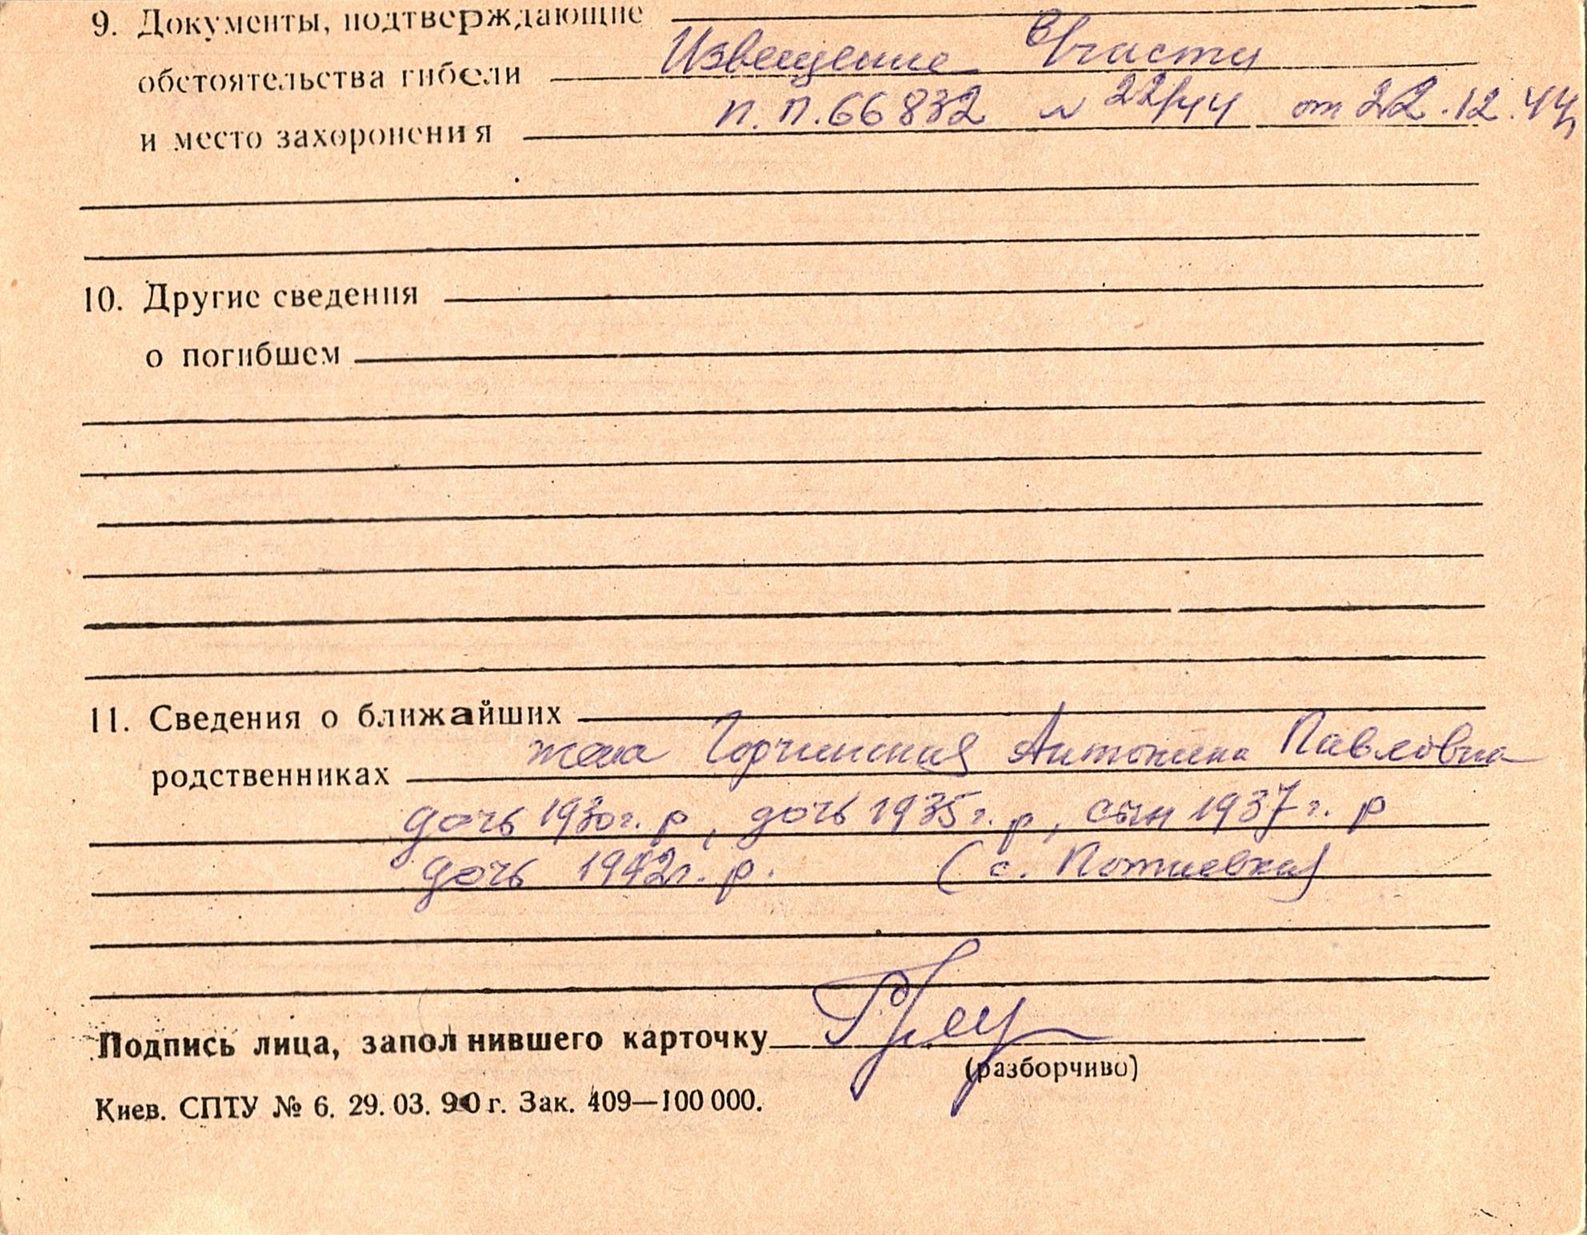 9. Документы, подтверждающие
обстоятельства гибели Извещение в/части
и место захоронения п.п. 66832 № 22/44 от 22.12.44
10. Другие сведения
о погибшем
11. Сведения о ближайших
родственниках жена Горчинская Антонина Павловна
дочь 1930 г. р, дочь 1935 г. р, сын 1937 г. р
дочь 1942 г. р. (с. Потиевка)
Подпись лица, заполнившего карточку
(разборчиво)
Киев. СПТУ № 6. 29.03.90 г. Зак. 409—100 000.